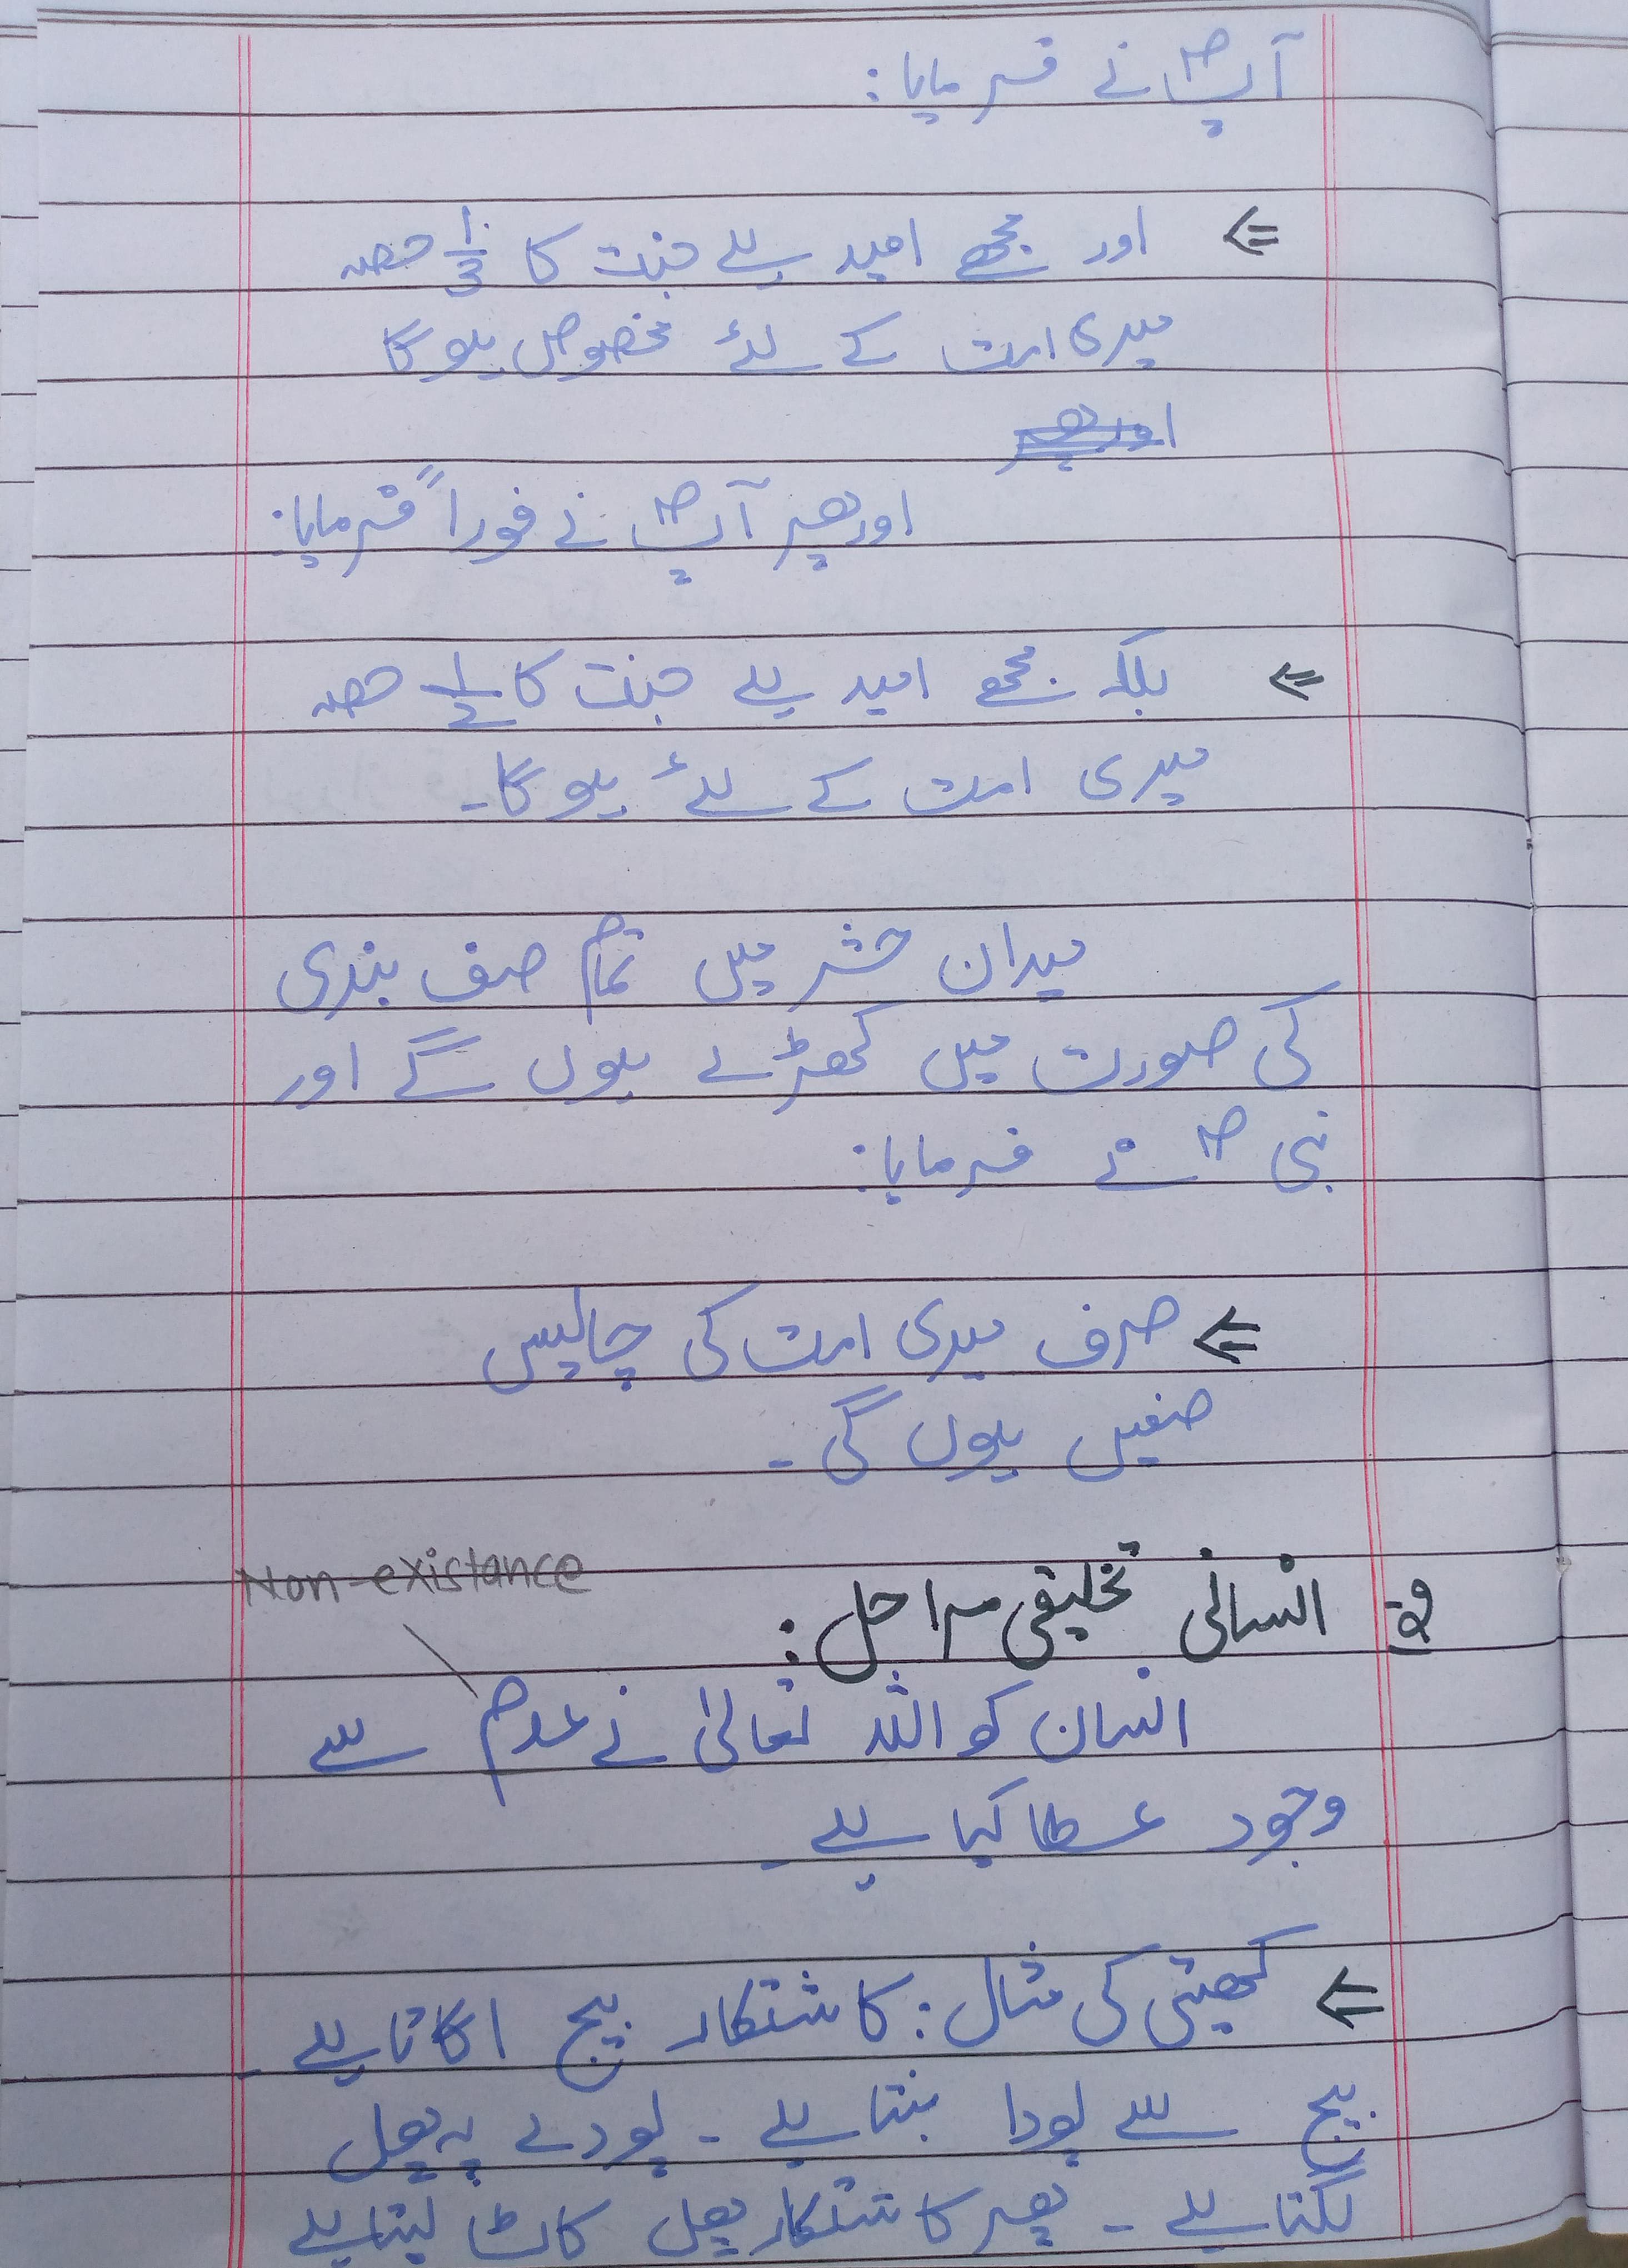 آپؐ نے فرمایا:
⇐ اور مجھے امید ہے جنت کا 1/3 حصہ
میری امت کے لئے مخصوص ہو گا
اور پھر آپؐ نے فوراً فرمایا:
⇐ بلکہ مجھے امید ہے جنت کا 1/2 حصہ
میری امت کے لئے ہو گا۔
میدان حشر میں تمام صف بندی
کی صورت میں کھڑے ہوں گے اور
نبیؐ نے فرمایا:
⇐ صرف میری امت کی چالیس
صفیں ہوں گی۔
Non-existance
انسانی تخلیقی مراحل:
انسان کو اللہ تعالیٰ نے عدم سے
وجود عطا کیا ہے۔
⇐ کھیتی کی مثال: کاشتکار بیج اگاتا ہے۔
بیج سے پودا بنتا ہے۔ پودے پہ پھل
لگتا ہے۔ پھر کاشتکار پھل کاٹ لیتا ہے